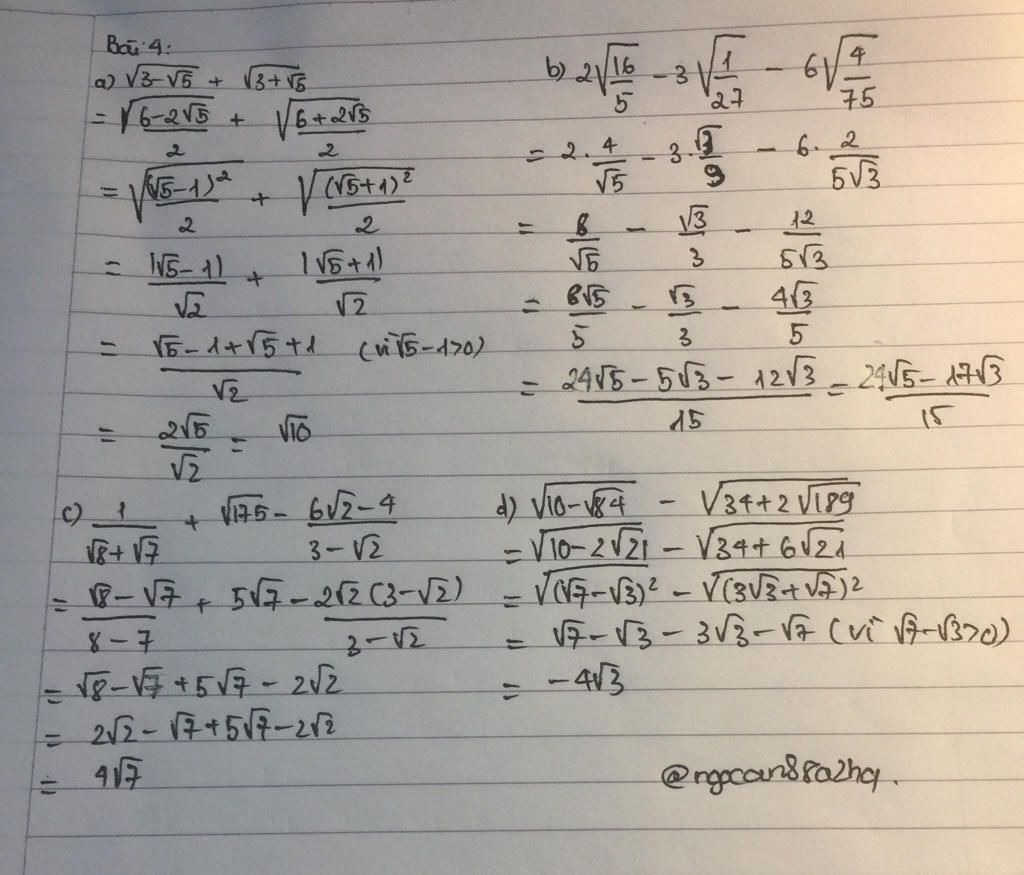 Bài 4:
a) √(3-√5) + √(3+√5)
= √((6-2√5)/2) + √((6+2√5)/2)
= √((√5-1)²/2) + √((√5+1)²/2)
= |√5-1|/√2 + |√5+1|/√2
= (√5-1+√5+1)/√2 (vì √5-1>0)
= 2√5/√2 = √10
b) 2√(16/5) - 3√(1/27) - 6√(4/75)
= 2·4/√5 - 3·√3/9 - 6·2/(5√3)
= 8/√5 - √3/3 - 12/(5√3)
= 8√5/5 - √3/3 - 4√3/5
= (24√5 - 5√3 - 12√3)/15 = (24√5 - 17√3)/15
c) 1/(√8+√7) + √175 - (6√2-4)/(3-√2)
= (√8-√7)/(8-7) + 5√7 - 2√2(3-√2)/(3-√2)
= √8-√7+5√7-2√2
= 2√2-√7+5√7-2√2
= 4√7
d) √(10-√84) - √(34+2√189)
= √(10-2√21) - √(34+6√21)
= √((√7-√3)²) - √((3√3+√7)²)
= √7-√3-3√3-√7 (vì √7-√3>0)
= -4√3
@ngocan88a2hq.